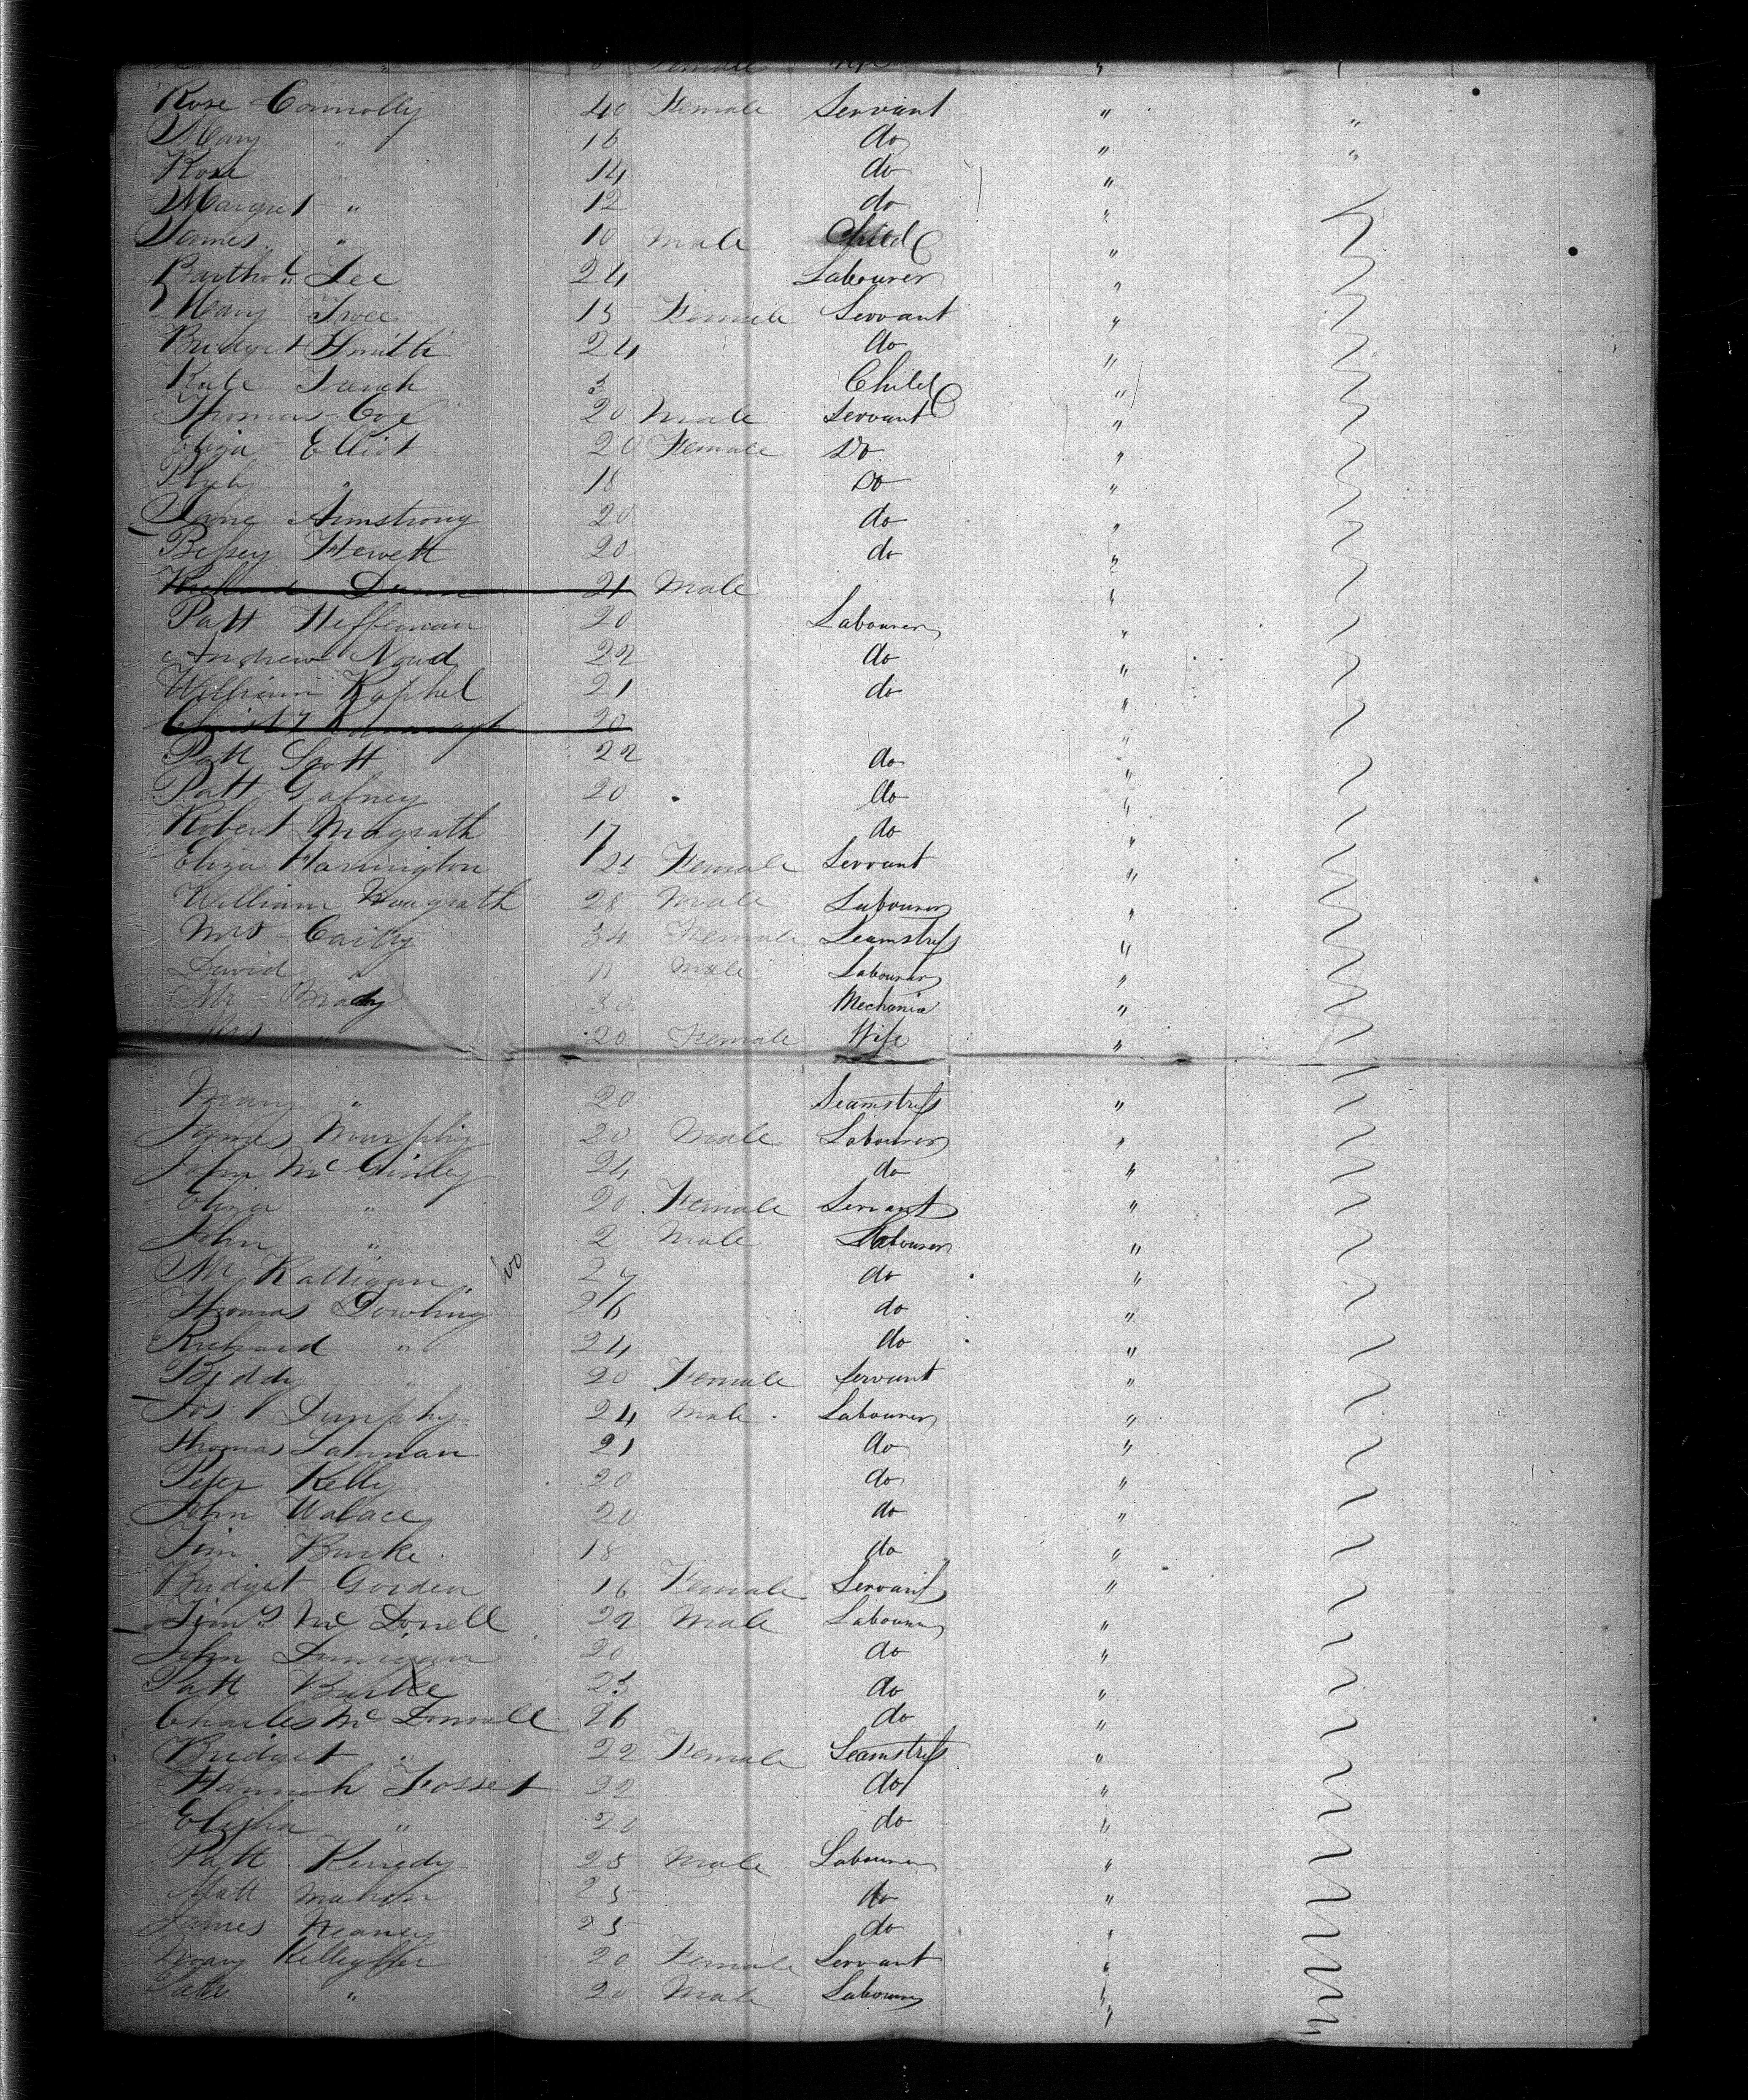 " Female "
Rose Connolly 40 Female Servant " "
Mary " 16 do " "
Rose " 14 do "
Margret " 12 do "
James " 10 Male Child "
Barthol. Lee 24 Labourer "
Mary 15 Female Servant "
Bridget Smith 24 do "
Kate 3 Child "
Thomas Cox 20 Male Servant "
Eliza Elliot 20 Female Do "
" 18 Do "
Jane Armstrong 20 do "
Bessey Hewett 20 do "
21 Male "
Patt Heffernan 20 Labourer "
Andrew 22 do "
William Raphel 21 do "
20 "
Patt Scott 22 do "
Patt Gafney 20 do "
Robert Magrath 17 do "
Eliza Harrington 25 Female Servant "
William Magrath 28 Male Labourer "
Mrs 34 Female Seamstress "
David " 11 Male Labourer "
Mr Brady 30 Mechanic "
Mrs " 20 Female Wife "
Mary " 20 Seamstress "
James Murphy 20 Male Labourer "
John McGinley 24 do "
Eliza " 20 Female Servant "
John " 2 Male Labourer "
Mr Rattigan 27 do "
Thomas Dowling 26 do "
Richard " 24 do "
Biddy " 20 Female Servant "
Jos Dunphy 24 Male Labourer "
Thomas 21 do "
Peter Kelly 20 do "
John Walace 20 do "
Tim Burke 18 do "
Bridget Gorden 16 Female Servant "
McDonell 22 Male Labourer "
John 20 do "
Patt Burke 23 do "
Charles Mc 26 do "
Bridget " 22 Female Seamstress "
Hannah Fosset 22 do "
" 20 do "
Patt Kenedy 25 Male Labourer "
Matt Mahon 25 do "
James 25 do "
Mary 20 Female Servant "
" 20 Male Labourer "